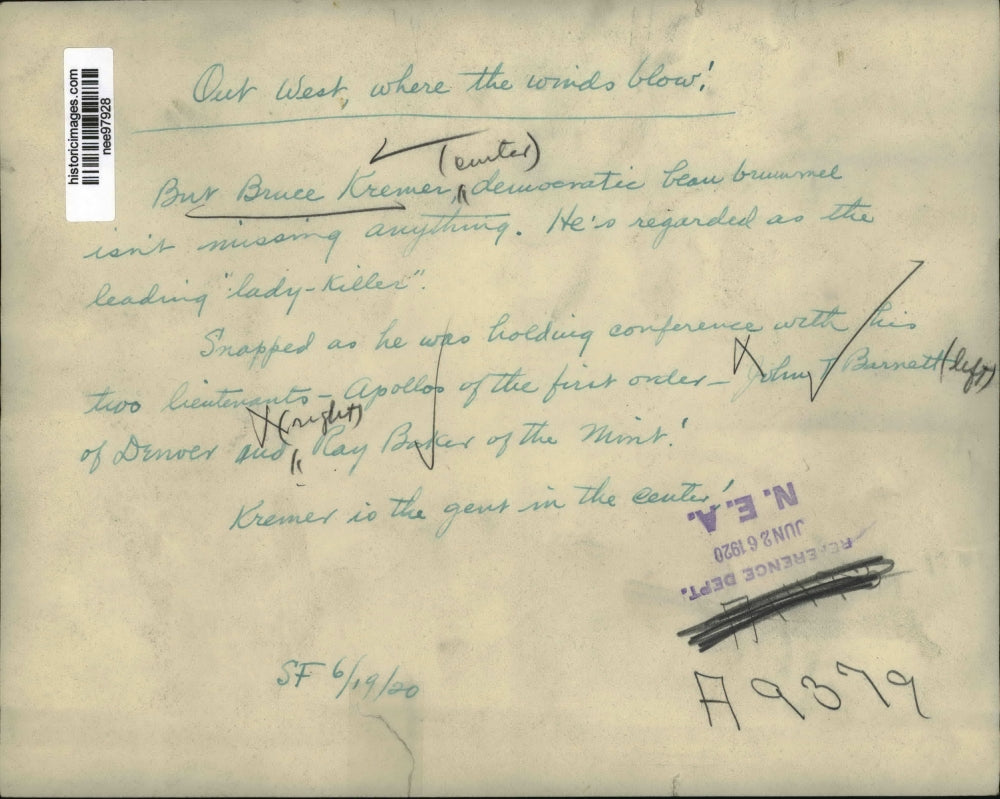 historicimages.com
nee97928
Out West, where the winds blow!
(center)
But Bruce Kremer, democratic beau brummel
isn't missing anything. He's regarded as the
leading "lady-killer".
Snapped as he was holding conference with his
two lieutenants - Apollos of the first order - John T Barnett (left)
(right)
of Denver and Ray Baker of the Mint!
Kremer is the gent in the center!
N.E.A.
JUN 26 1920
REFERENCE DEPT.
A9379
SF 6/19/20